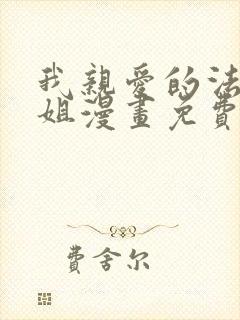 我親愛的法
姐漫畫免費
費舍尔